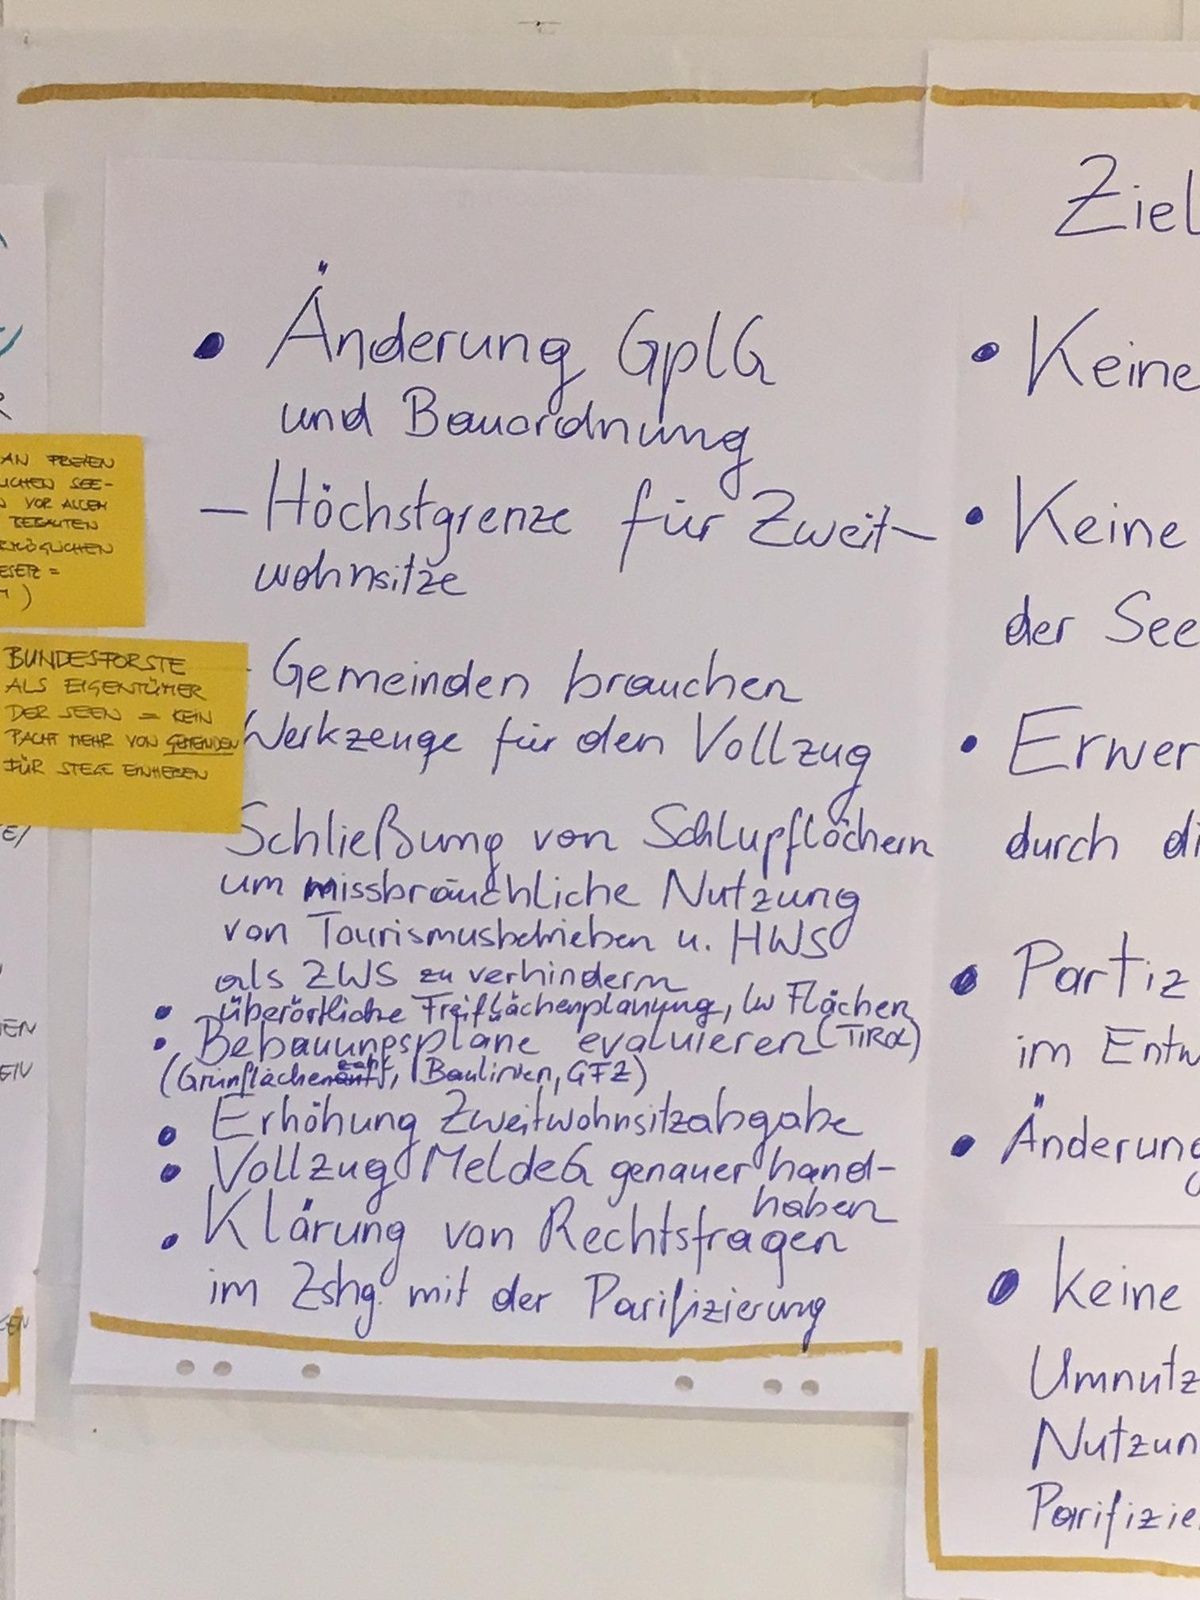 • Änderung GplG
und Bauordnung
— Höchstgrenze für Zweit-
wohnsitze
- Gemeinden brauchen
Werkzeuge für den Vollzug
Schließung von Schlupflöchern
um missbräuchliche Nutzung
von Tourismusbetrieben u. HWS
als ZWS zu verhindern
• überörtliche Freiflächenplanung, lw Flächen
• Bebauungspläne evaluieren (TIROL)
(Grünflächen, Baulinien, GFZ)
• Erhöhung Zweitwohnsitzabgabe
• Vollzug MeldeG genauer hand-
haben
• Klärung von Rechtsfragen
im Zshg. mit der Parifizierung
AN FREIEN
LICHEN SEE-
VOR ALLEM
BEBAUTEN
RMÖGLICHEN
ESETZ =
)
BUNDESFORSTE
ALS EIGENTÜMER
DER SEEN = KEIN
PACHT MEHR VON GEMEINDEN
FÜR STEGE EINHEBEN
Ziel
• Keine
• Keine
der See
• Erwer
durch di
• Partiz
im Entw
• Änderung
• keine
Umnutz
Nutzun
Parifizie